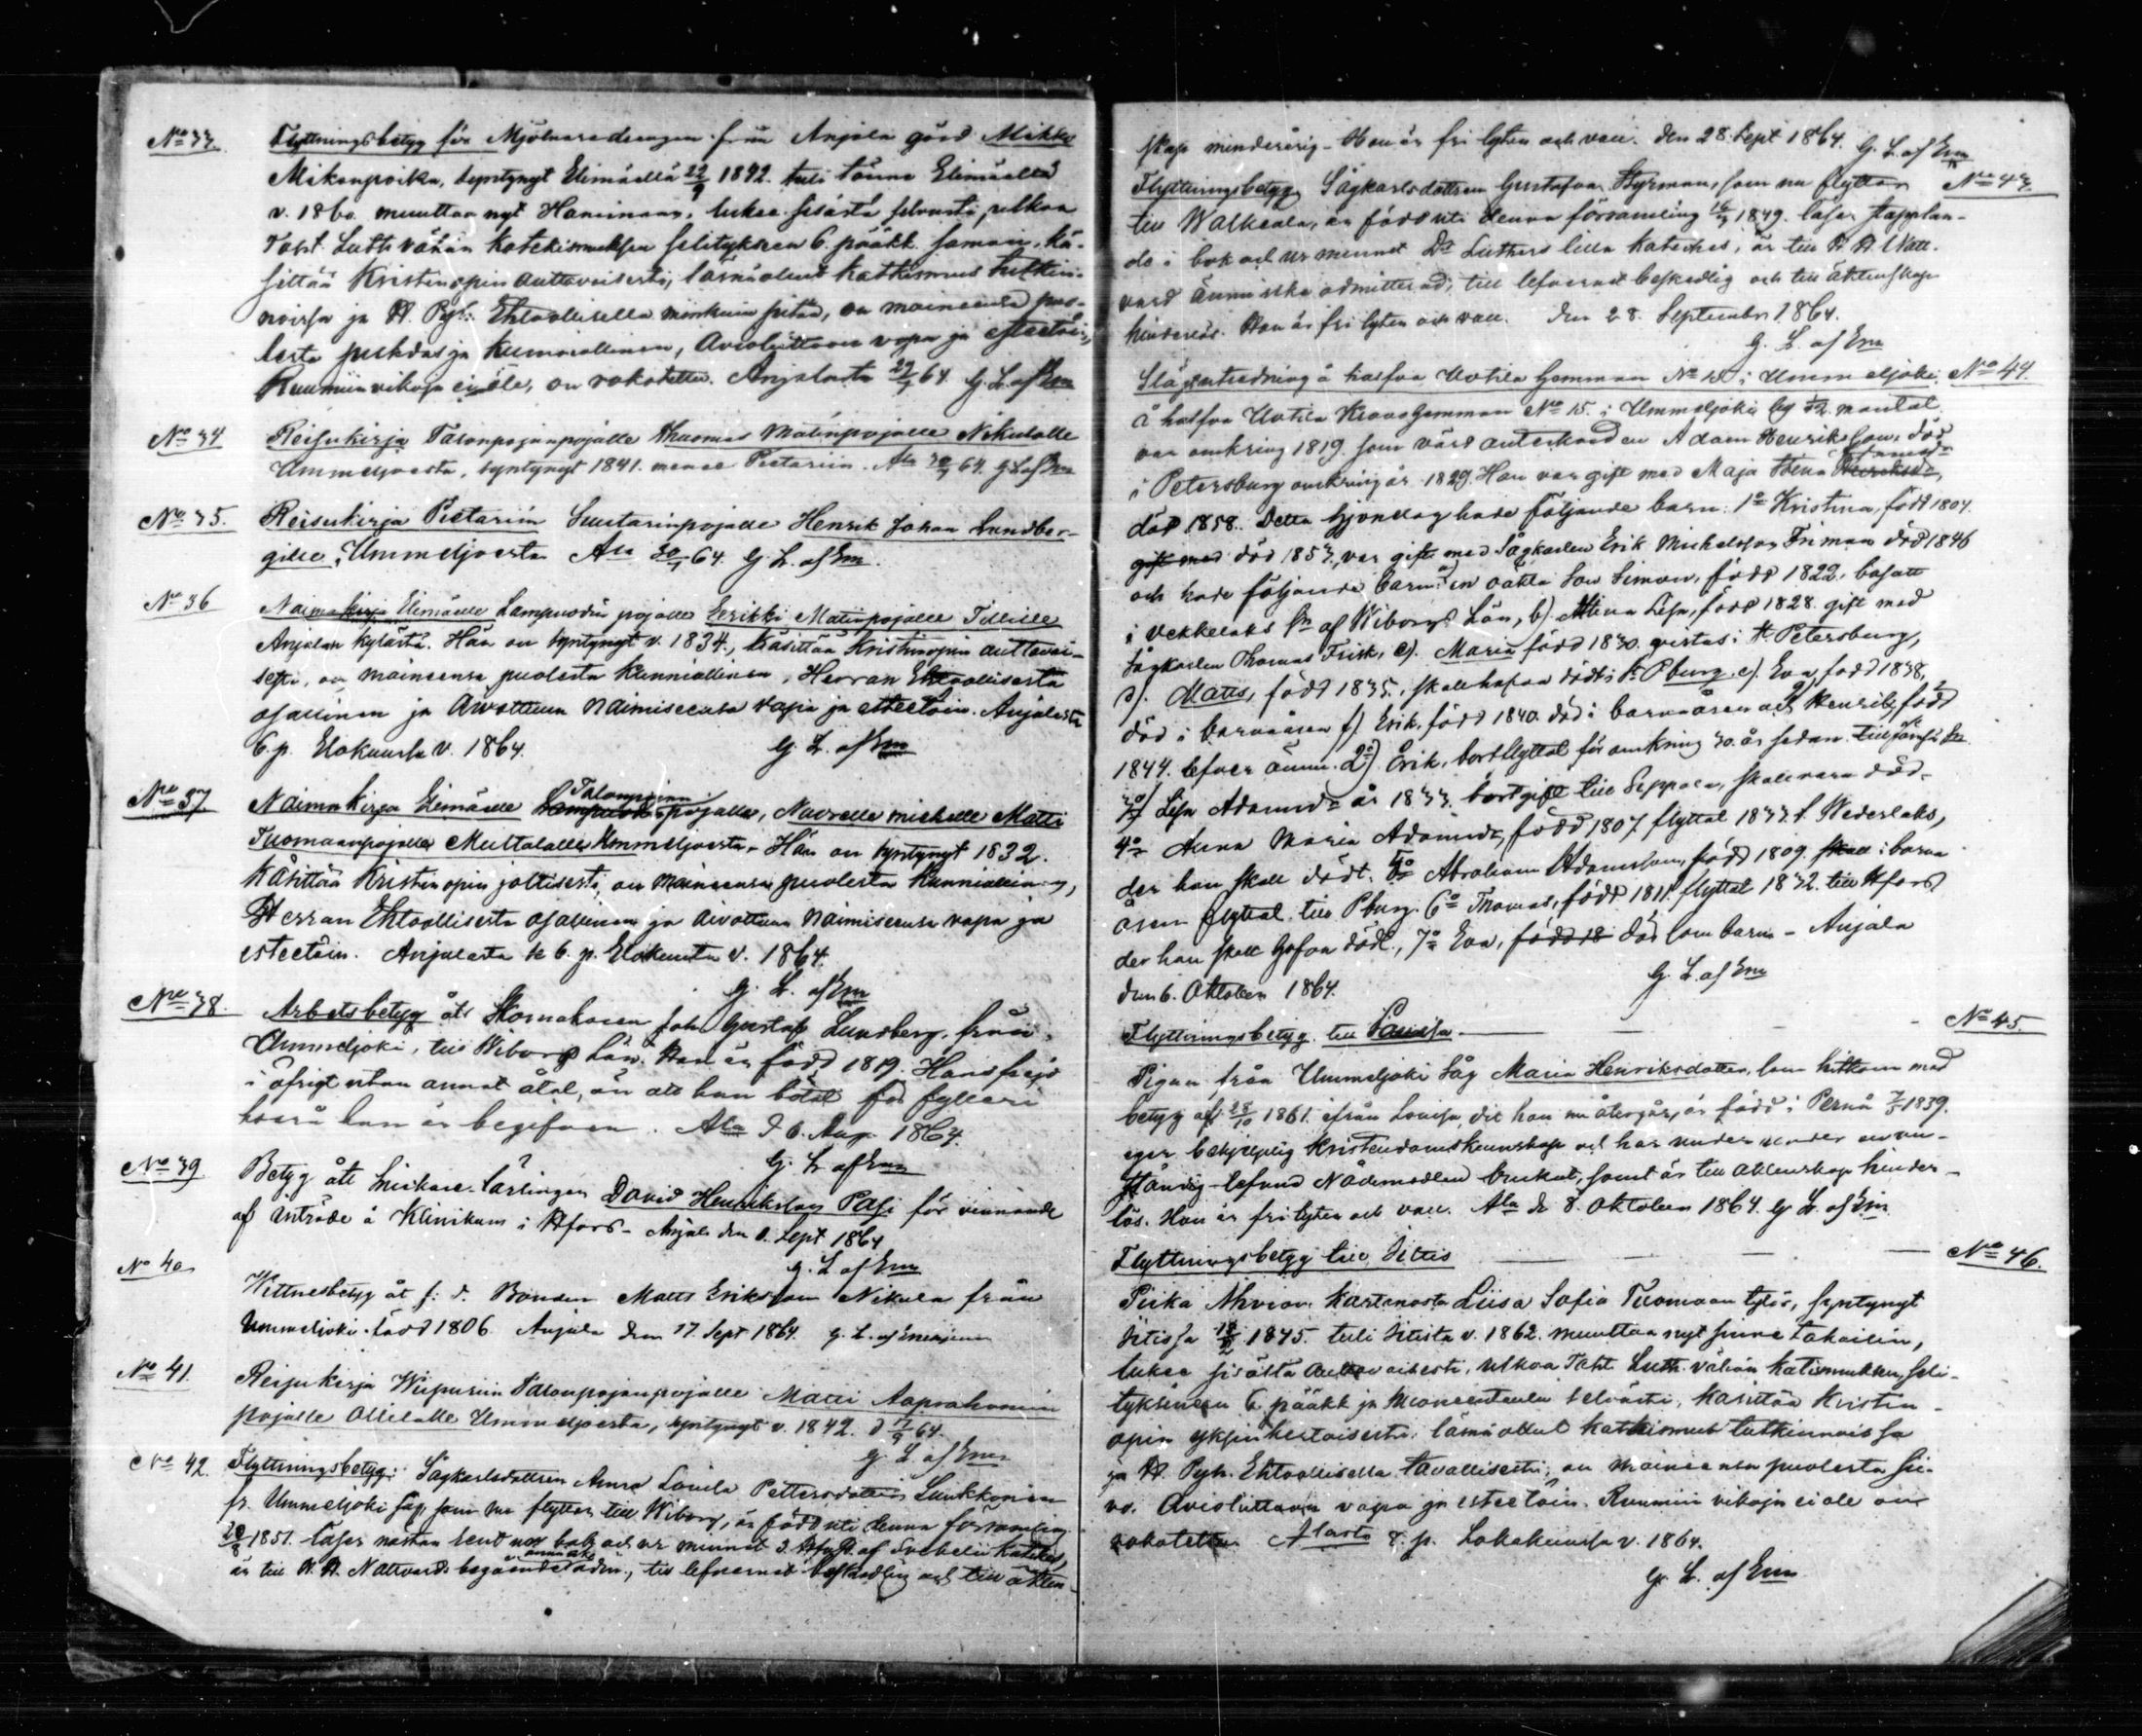 No 33. Flyttningsbetyg för Mjölnaredrengen från Anjala gård Mikko
Mikonpoika, syntynyt Elimäellä 22/9 1842. tuli tänne Elimäeltä
v. 1860. muuttaa nyt Haminaan, lukee sisästä selvästi, ulkoa
Toht. Luth. vähän Katekismuksen selityksen 6. pääkk. samoin, kä-
sittää Kristinopin auttavaisesti, läsnäollut Katkismus tutkin-
noissa ja H. Pyh. Ehtoollisella minkuin pitää, on maineensa puo-
lesta puhdas ja kunniallinen, Avioliittoon vapa ja esteetöin,
Ruumiin vikoja ei ole, on rokotettu. Anjalasta 29/9 64. G. L. af Em
No 34 Reisukirja Talonpojanpojalle Thuomas Matinpojalle Nikulalle
Ummeljoesta, syntynyt 1841. menee Pietariin. Ala 30/ 64. G L af Em
No 35. Reisukirja Pietariin Suutarinpojalle Henrik Johan Lundber-
gille, Ummeljoesta Ala 30/ 64. G. L. af Em.
No 36 Naimakirja Elimäelle Lampuodin pojalle Eerikki Matinpojalle Tillille
Anjalan kylästä. Hän on syntynyt v. 1834., käsittää Kristinopin auttavai-
sesti, on maineensa puolesta kunniallinen, Herran Ehtoollisesta
osallinen ja Aivottuun Naimiseensa vapa ja esteetöin. Anjalasta
6. p. Elokuussa v. 1864. G. L. af Em
No 37 Naimakirja Elimäelle Talonpojan pojalle, Nuorelle miehelle Matti
Tuomaanpojalle Multalalle Ummeljoesta. Hän on syntynyt 1832.
Käsittää Kristinopin jottisesti, on Maineensa puolesta Kunniallinen,
Herran Ehtoollisesta osallinen ja aivottuun Naimiseensa vapa ja
esteetöin. Anjalasta 6. p. Elokuuta v. 1864.
G. L. af Em
No 38. Arbetsbetyg åt Skomakaren Joh. Gustaf Lundberg, från
Ummeljoki, till Wiborgs Län. Han är född 1819. Hans frejd
i öfrigt utan annat åtal, än att han bötat för fylleri
hvarå han är begifven. Ala d 6. Aug. 1864.
G. L. af Em
No 39 Betyg åt Snickare-lärlingen David Henriksson Pasi för vinnande
af inträde å Klinikum i Hfors - Anjala den 1. Sept 1864
G. L. af Em
No 40 Wittnesbetyg åt f. d. Bonden Matts Eriksson Nikula från
Ummeljoki. född 1806. Anjala den 17. Sept 1864. G. L. af Enehjelm
No 41. Reisukirja Wiipuriin Talonpojanpojalle Matti Aaprahamin
pojalle Ollilalle Ummeljoesta, syntynyt v. 1842. d 17/9 64.
G. L. af Em
No 42. Flyttningsbetyg. Sågkarlsdottren Anna Lovisa Pettersdotter Luukkonen
fr. Ummeljoki såg som nu flyttar till Wiborg, är född uti denna församling
20/8 1851. läser nästan rent ur bok och ur minnet af Svebelii Kateches,
är till H. H. Nattvards begående, till lefvernet beskedlig och till äkten-
skap minderårig. Hon är fri lyten och vacc. Den 28. Sept 1864. G. L. af Em
Flyttningsbetyg Sågkarlsdottren Gustafva Styrman, som nu flyttar No 43.
till Walkeala, är född uti denna församling 16/ 1849. läser stapplan-
de i bok och ur minnet Dr Luthers lilla Kateches, är till H. H. Natt-
vard ännu icke admitterad; till lefvernet beskedlig och till äktenskap
hinderlös. Hon är fri lyten och vacc. Den 28. September 1864.
G. L. af Em
Slägtutredning å halfva Uotila hemman No 15 i Ummeljoki No 44.
Å halfva Uotila Kronohemman No 15. i Ummeljoki by 1/2 mantal
var omkring 1819. som värd antecknad en Adam Henriksson, död
i Petersburg omkring år 1829. Han var gift med Maja Stina
död 1858. Detta hjonelag hade följande barn: 1o Kristina, född 1804.
gift med död 1857, var gift med Sågkarlen Erik Michelsson Friman död 1846
och hade följande barn: a) en oäkta Son Simon, född 1822, bosatt
i Vekkelaks sn af Wiborgs Län, b). Stina Lisa, född 1828. gift med
Sågkarlen Thomas Frisk, c). Maria född 1830. vistas i St. Petersburg,
d). Matts, född 1835, skall hafva dödt i St. Pburg. e). Eva, född 1838,
död i barnaåren f) Erik, född 1840. död i barnaåren och Henrik, född
1844. lefver ännu. 2o) Erik, bortflyttat för omkring 30. år sedan till
3o) Lisa Adamsdr år 1833. bortgift till Seppala, skall vara död.
4o Anna Maria Adamsdr, född 1807 flyttat 1833. t. Wederlaks,
der hon skall dödt. 5o Abraham Adamsson, född 1809. skall i barna
åren flyttat till Pburg. 6o Thomas, född 1811. flyttat 1832. till Hfors
der han skall hafva dödt., 7o Eva, född 18 död som barn. - Anjala
den 6. Oktober 1864. G. L. af Em
Flyttningsbetyg till Lovisa. No 45.
Pigan från Ummeljoki såg Maria Henriksdotter, som hitkom med
betyg af 28/10 1861 ifrån Lovisa, dit hon nu återgår, är född i Pernå 7/ 1839.
eger behjelplig Kristendomskunskap och har under en an-
ständig lefnad Nådemedlen brukat, samt är till äktenskap hinder-
lös. Hon är fri lyten och vacc. Ala d. 8. Oktober 1864. G. L. af Em.
Flyttningsbetyg till Ititis No 46.
Piika Ahvion kartanosta Liisa Sofia Tuomaan tytär, syntynyt
Iitissä 18/2 1845. tuli Iitistä v. 1862. muuttaa nyt sinne takaisin,
lukee sisältä auttavaisesti, ulkoa Toht. Luth. vähän katismuksen, seli-
tyksineen 6. pääkk ja Huoneentaulu selvästi, käsittää Kristin-
opin yksinkertaisesti, läsnä ollut katkismus tutkinnoissa
ja H. Pyh. Ehtoollisella tavallisesti, on maineensa puolesta si-
vo. Avioliittoon vapa ja esteetöin. Ruumin vikoja ei ole on
rokotettu. Alasta 8. p. Lokakuussa v. 1864.
G. L. af Em